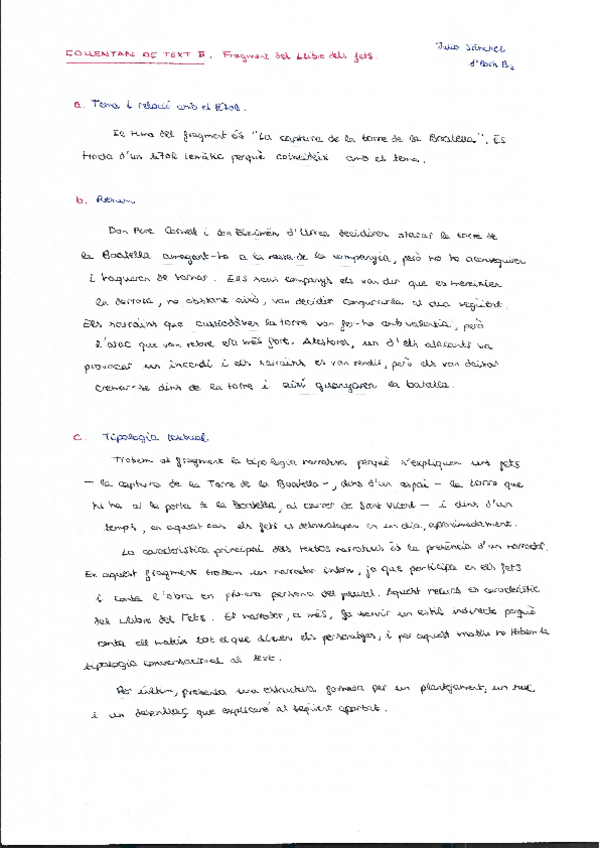 COMENTARI DE TEXT II. Fragment del Llibre dels fets.
Julio Sánchez
a. Tema i relació amb el títol.
El tema del fragment és "La captura de la torre de la Boatella". Es
tracta d'un títol temàtic perquè coincideix amb el tema.
b. Resum
Don Pere Cornell i don Eiximèn d'Urrea decidiren atacar la torre de
la Boatella amagant-ho a la resta de la companyia, però no ho aconseguiren
i hagueren de tornar. Els seus companys els van dir que es mereixien
la derrota, no obstant això, van decidir conquerir-la al dia següent.
Els sarraïns que custodiaven la torre van fer-ho amb valentia, però
l'atac que van rebre era més fort. Aleshores, un d'els atacants va
provocar un incendi i els sarraïns es van rendir, però els van deixar
cremar-se dins de la torre i així guanyaren la batalla.
c. Tipologia textual
Trobem al fragment la tipologia narrativa perquè s'expliquen uns fets
– la captura de la Torre de la Boatella –, dins d'un espai – la torre que
hi ha a la porta de la Boatella, al carrer de Sant Vicent – i dins d'un
temps, en aquest cas els fets es desenvolupen en un dia, aproximadament.
La característica principal dels textos narratius és la presència d'un narrador.
En aquest fragment trobem un narrador intern, ja que participa en els fets
i conta l'obra en primera persona del plural. Aquest recurs és característic
del Llibre del Fets. El narrador, a més, fa servir un estil indirecte perquè
conta ell mateix tot el que diuen els personatges, i per aquest motiu no trobem la
tipologia conversacional al text.
Per últim, presenta una estructura formada per un plantejament, un nus
i un desenllaç que explicaré al següent apartat.